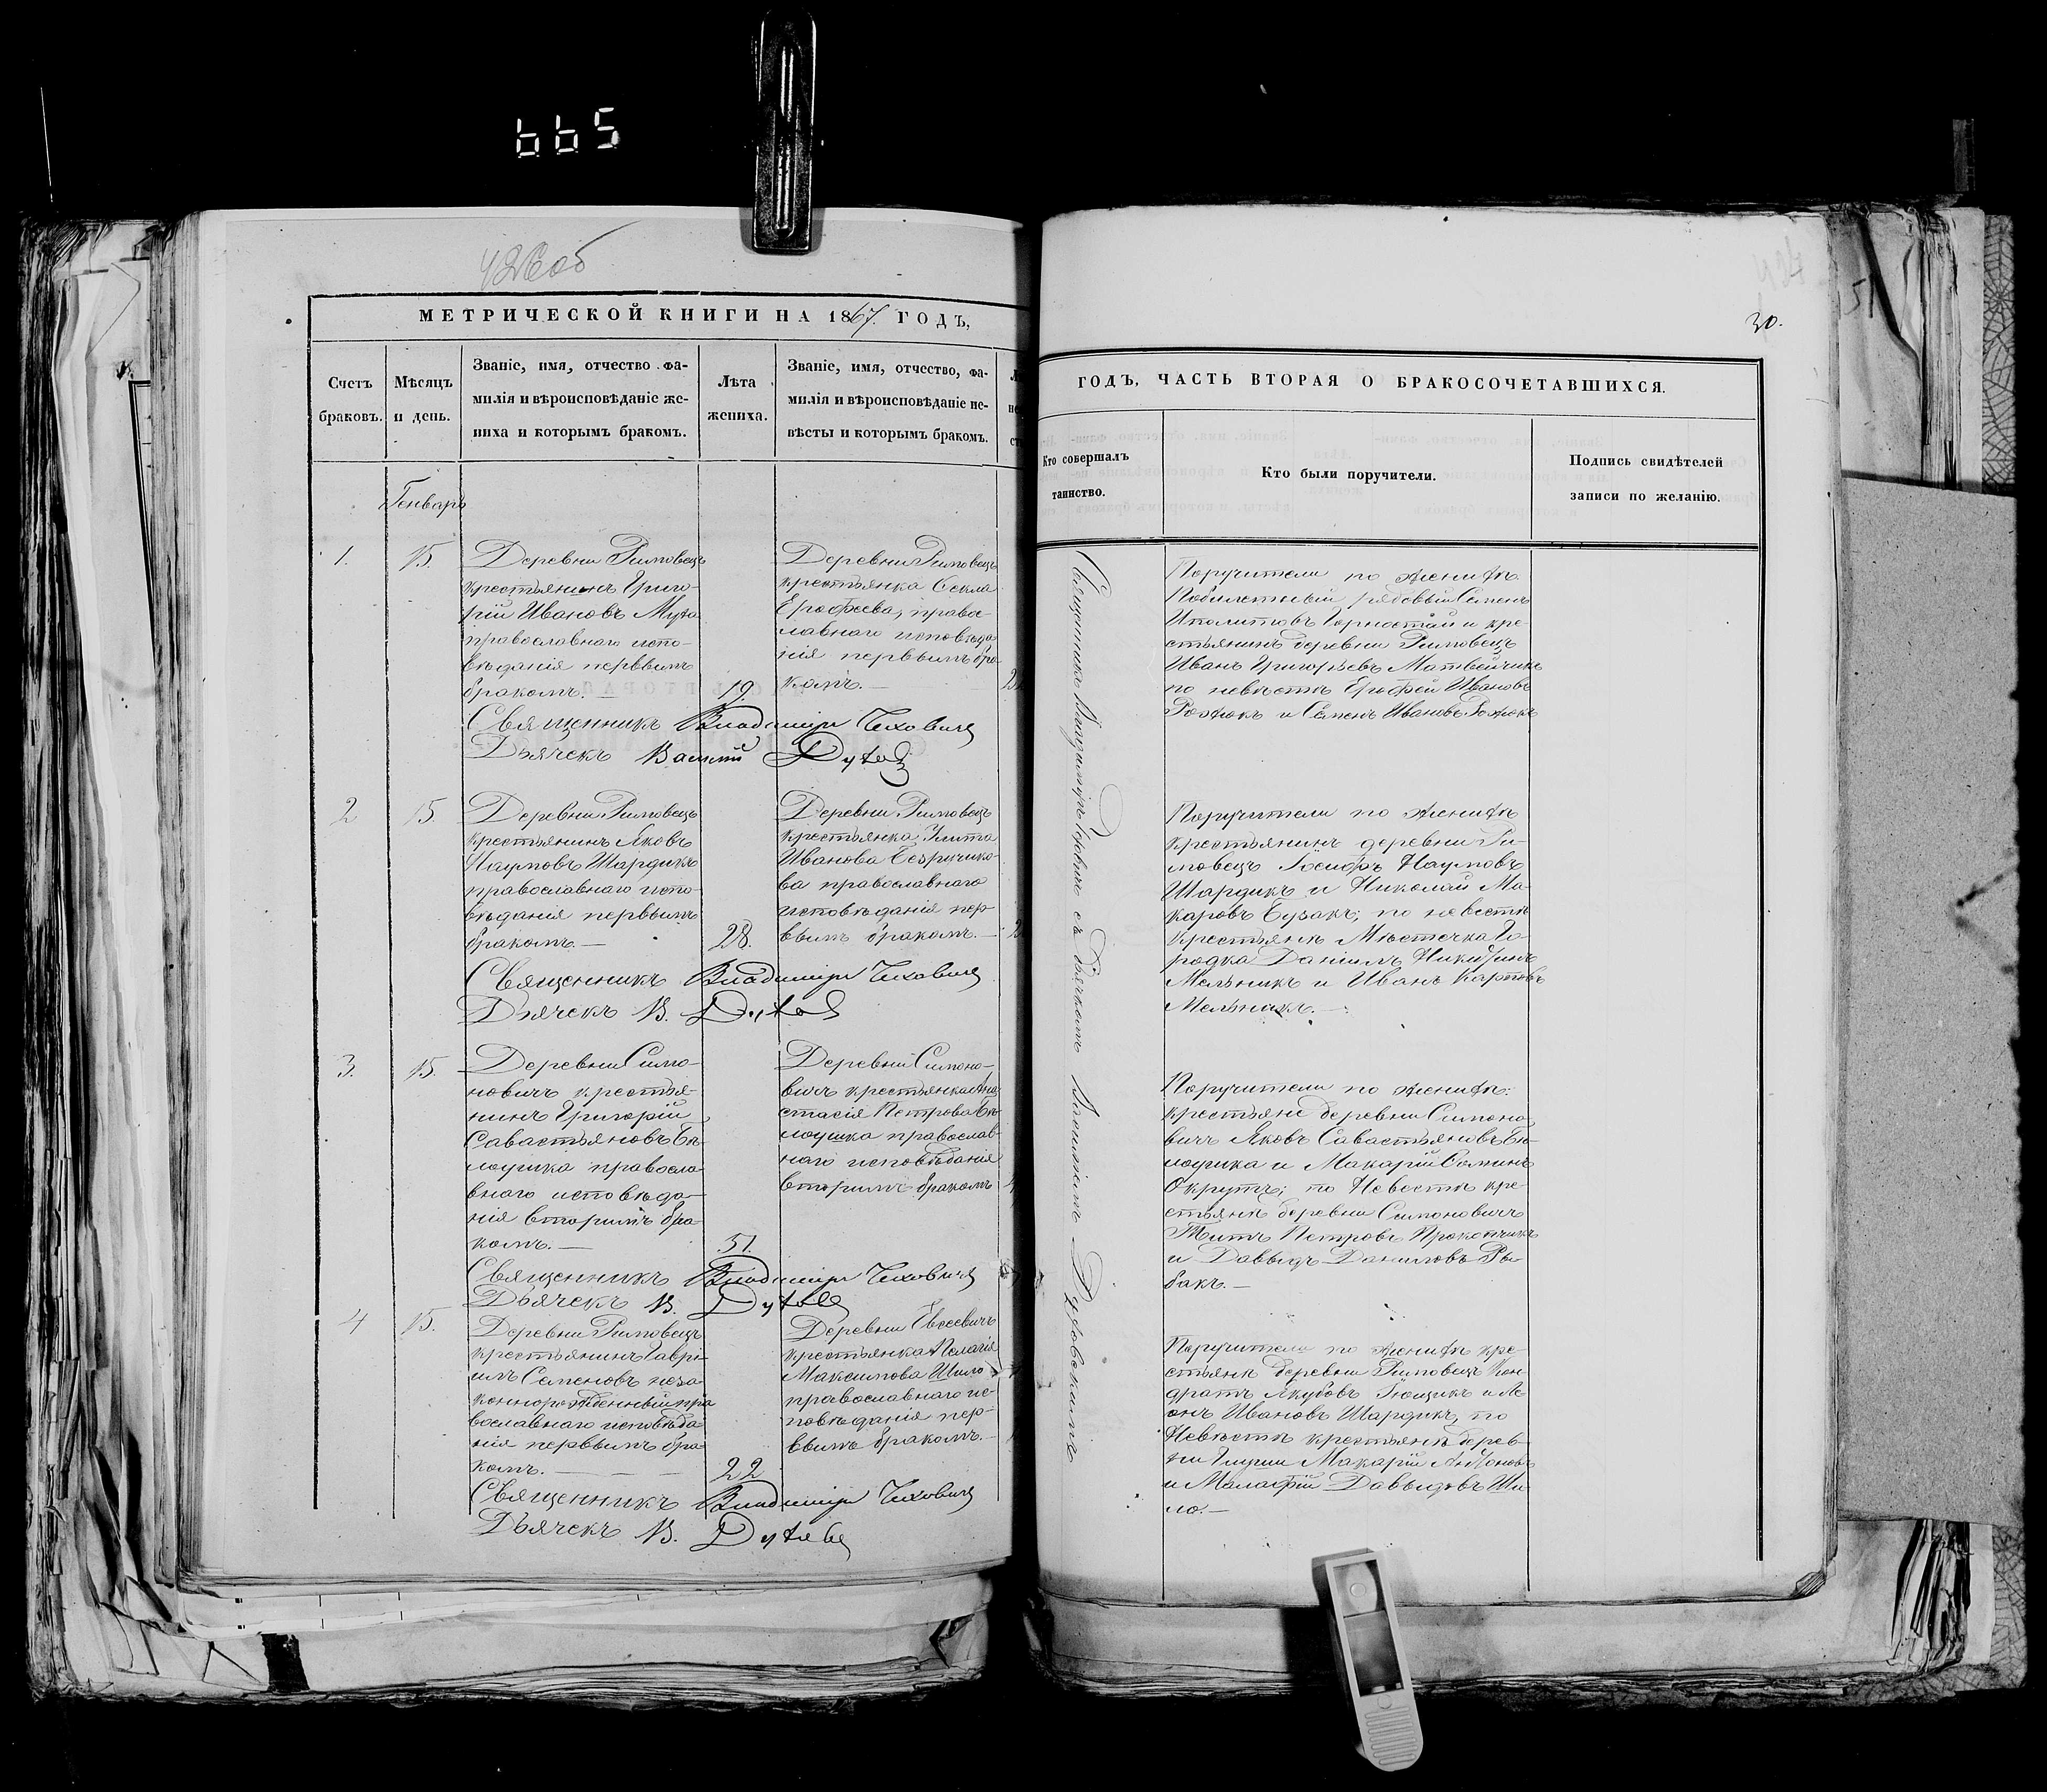 665
426об
МЕТРИЧЕСКОЙ КНИГИ НА 1867. ГОДЪ,
Счетъ браковъ.
Мѣсяцъ и день.
Званіе, имя, отчество фа-
милія и вѣроисповѣданіе же-
ниха и которымъ бракомъ.
Лѣта жениха.
Званіе, имя, отчество, фа-
милія и вѣроисповѣданіе не-
вѣсты и которымъ бракомъ.
Генварь
1.
15.
Деревни Римовецъ
крестьянинъ Григо-
рій Ивановъ Муха
православнаго испо-
вѣданія первымъ
бракомъ.
19.
Деревни Римовецъ
крестьянка Ѳекла
Ерофѣева, право-
лавнаго исповѣда
нія первымъ бра-
комъ.
Священникъ Владиміръ Чеховичъ
Дьячекъ Василій
2
15.
Деревни Римовецъ
крестьянинъ Яковъ
Наумовъ Шардыкъ
православнаго испо-
вѣданія первымъ
бракомъ.
28.
Деревни Римовецъ
крестьянка
Иванова
ва православнаго
исповѣданія пер-
вымъ бракомъ.
Священникъ Владиміръ Чеховичъ
Дьячекъ В.
3.
15.
Деревни Симо-
новичъ крестья-
нинъ Григорій
Савастьяновъ Бѣ-
лоушка правосла-
внаго исповѣда-
нія вторымъ бра-
комъ.
51.
Деревни Симоно-
вичъ крестьянка Ана-
стасія Петрова Бѣ-
лоушка православ-
наго исповѣданія
вторымъ бракомъ
Священникъ Владиміръ Чеховичъ
Дьячекъ В.
4
15.
Деревни Римовецъ
крестьянинъ Гаврі-
илъ Семеновъ неза-
коннорожденный пра
вославнаго исповѣда
нія первымъ бра-
комъ.
22
Деревни Евсеевичъ
крестьянка Пелагія
Максимова Шило
православнаго ис-
повѣданія пер-
вымъ бракомъ.
Священникъ Владиміръ Чеховичъ
Дьячекъ В.
30.
ГОДЪ, ЧАСТЬ ВТОРАЯ О БРАКОСОЧЕТАВШИХСЯ.
Кто совершалъ
таинство.
Кто были поручители.
Подпись свидѣтелей
записи по желанію.
Священникъ Владиміръ Чеховичъ съ дьячкомъ
Поручители по женихѣ
рядовый Семенъ
Иполитовъ Горностай и кре-
стьянинъ деревни Римовецъ
Иванъ Григорьевъ Матвейчикъ
по невѣстѣ Ерофей Ивановъ
и Семенъ Ивановъ
Поручители по женихѣ
крестьянинъ деревни Ри-
мовецъ Іосифъ Наумовъ
Шардыкъ и Николай Ма-
каровъ по невѣстѣ
крестьянѣ Мѣстечка Го-
родка Даніилъ Никитинъ
Мельникъ и Иванъ Карповъ
Мельникъ.
Поручители по женихѣ:
крестьяне деревни Симоно
вичъ Яковъ Савастьяновъ Бѣ-
лоушка и Макарій
Окрутъ; по Невѣстѣ кре-
стьянѣ деревни Симоновичъ
Титъ Петровъ Прокопчикъ
и Давыдъ Даниловъ Ры-
бакъ.
Поручители по женихѣ кре-
стьянѣ деревни Римовецъ Кон-
дратъ Якубовъ и Ле-
онъ Ивановъ Шардыкъ, по
Невѣстѣ крестьянѣ дерев-
ни Макарій
и Малафій Давыдовъ Ши-
ло.